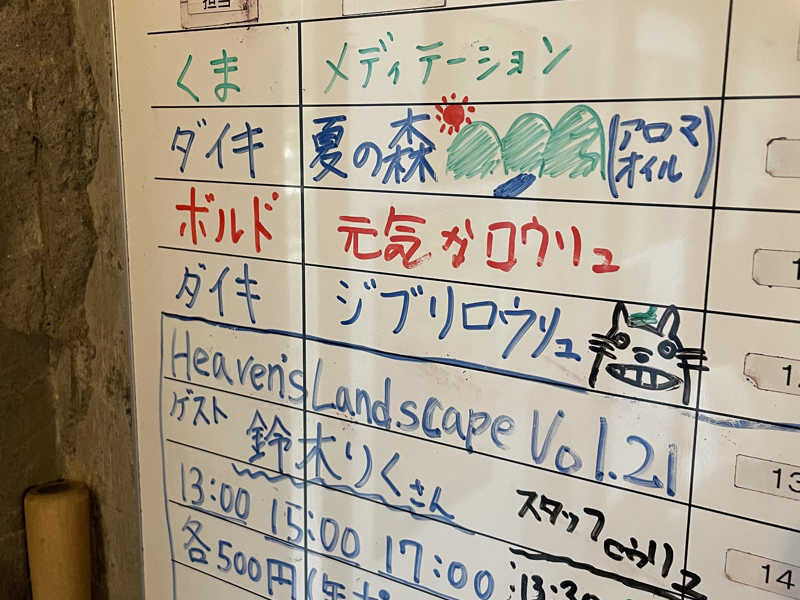 担当
くま メディテーション
ダイキ 夏の森 (アロマオイル)
ボルド 元気がロウリュ
ダイキ ジブリロウリュ
Heaven's Landscape Vol.21
ゲスト 鈴木りくさん
13:00 15:00 17:00
スタッフロウリュ
各500円
13
14